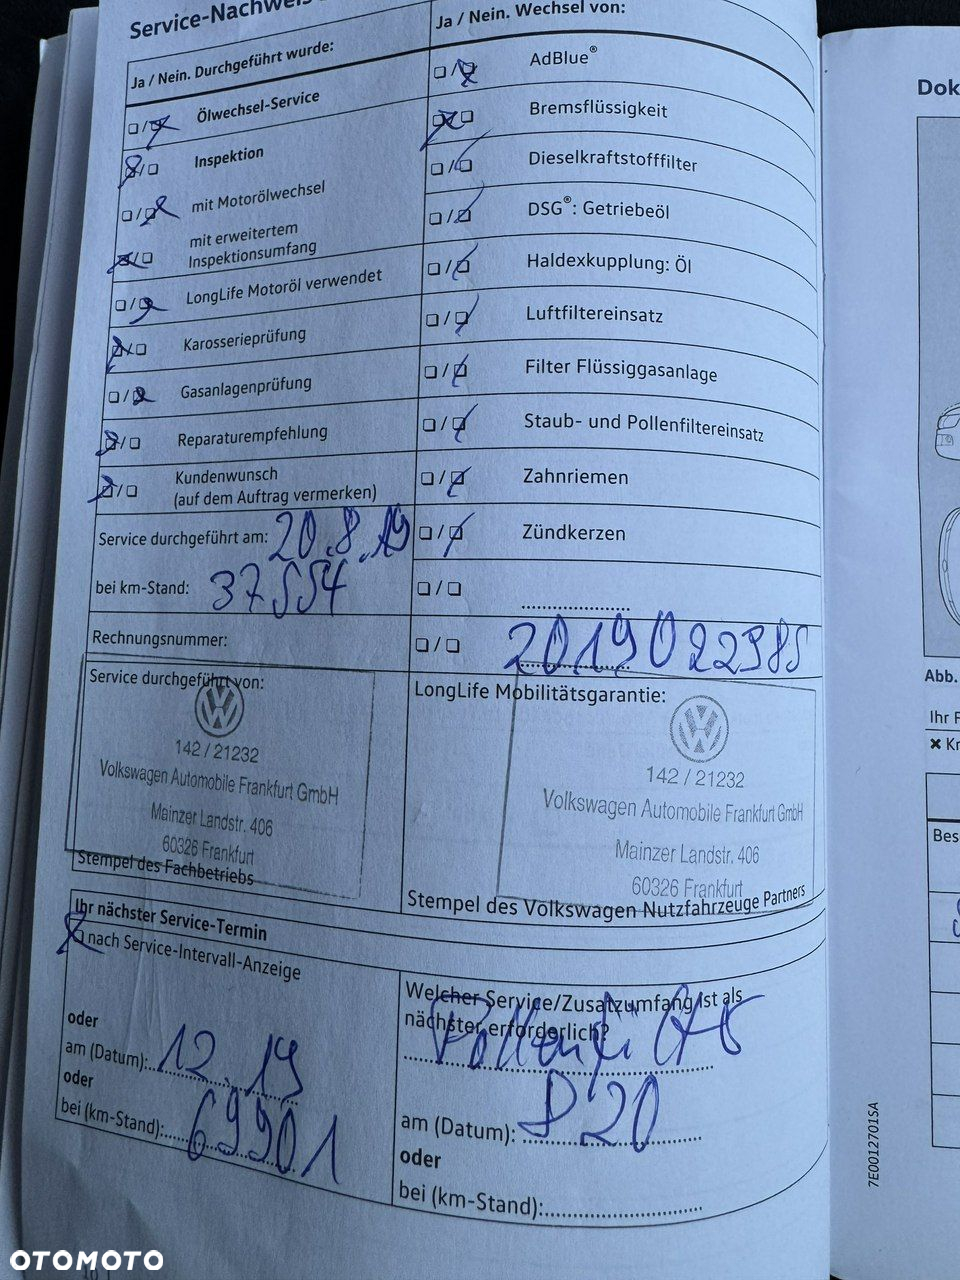 Service-Nachweis
Ja / Nein. Durchgeführt wurde:
Ölwechsel-Service
Inspektion
mit Motorölwechsel
mit erweitertem
Inspektionsumfang
LongLife Motoröl verwendet
Karosserieprüfung
Gasanlagenprüfung
Reparaturempfehlung
Kundenwunsch
(auf dem Auftrag vermerken)
Service durchgeführt am: 20.8.19
bei km-Stand: 37554
Rechnungsnummer:
Ja / Nein. Wechsel von:
AdBlue®
Bremsflüssigkeit
Dieselkraftstofffilter
DSG®: Getriebeöl
Haldexkupplung: Öl
Luftfiltereinsatz
Filter Flüssiggasanlage
Staub- und Pollenfiltereinsatz
Zahnriemen
Zündkerzen
Service durchgeführt von:
142 / 21232
Volkswagen Automobile Frankfurt GmbH
Mainzer Landstr. 406
60326 Frankfurt
Stempel des Fachbetriebs
LongLife Mobilitätsgarantie:
142 / 21232
Volkswagen Automobile Frankfurt GmbH
Mainzer Landstr. 406
60326 Frankfurt
Stempel des Volkswagen Nutzfahrzeuge Partners
Ihr nächster Service-Termin
nach Service-Intervall-Anzeige
oder
am (Datum): 12.19
oder
bei (km-Stand): 69901
Welcher Service/Zusatzumfang ist als
nächster erforderlich?
am (Datum): 8 20
oder
bei (km-Stand):
Dok
Abb.
Ihr F
Kr
Bes
7E0012701SA
OTOMOTO